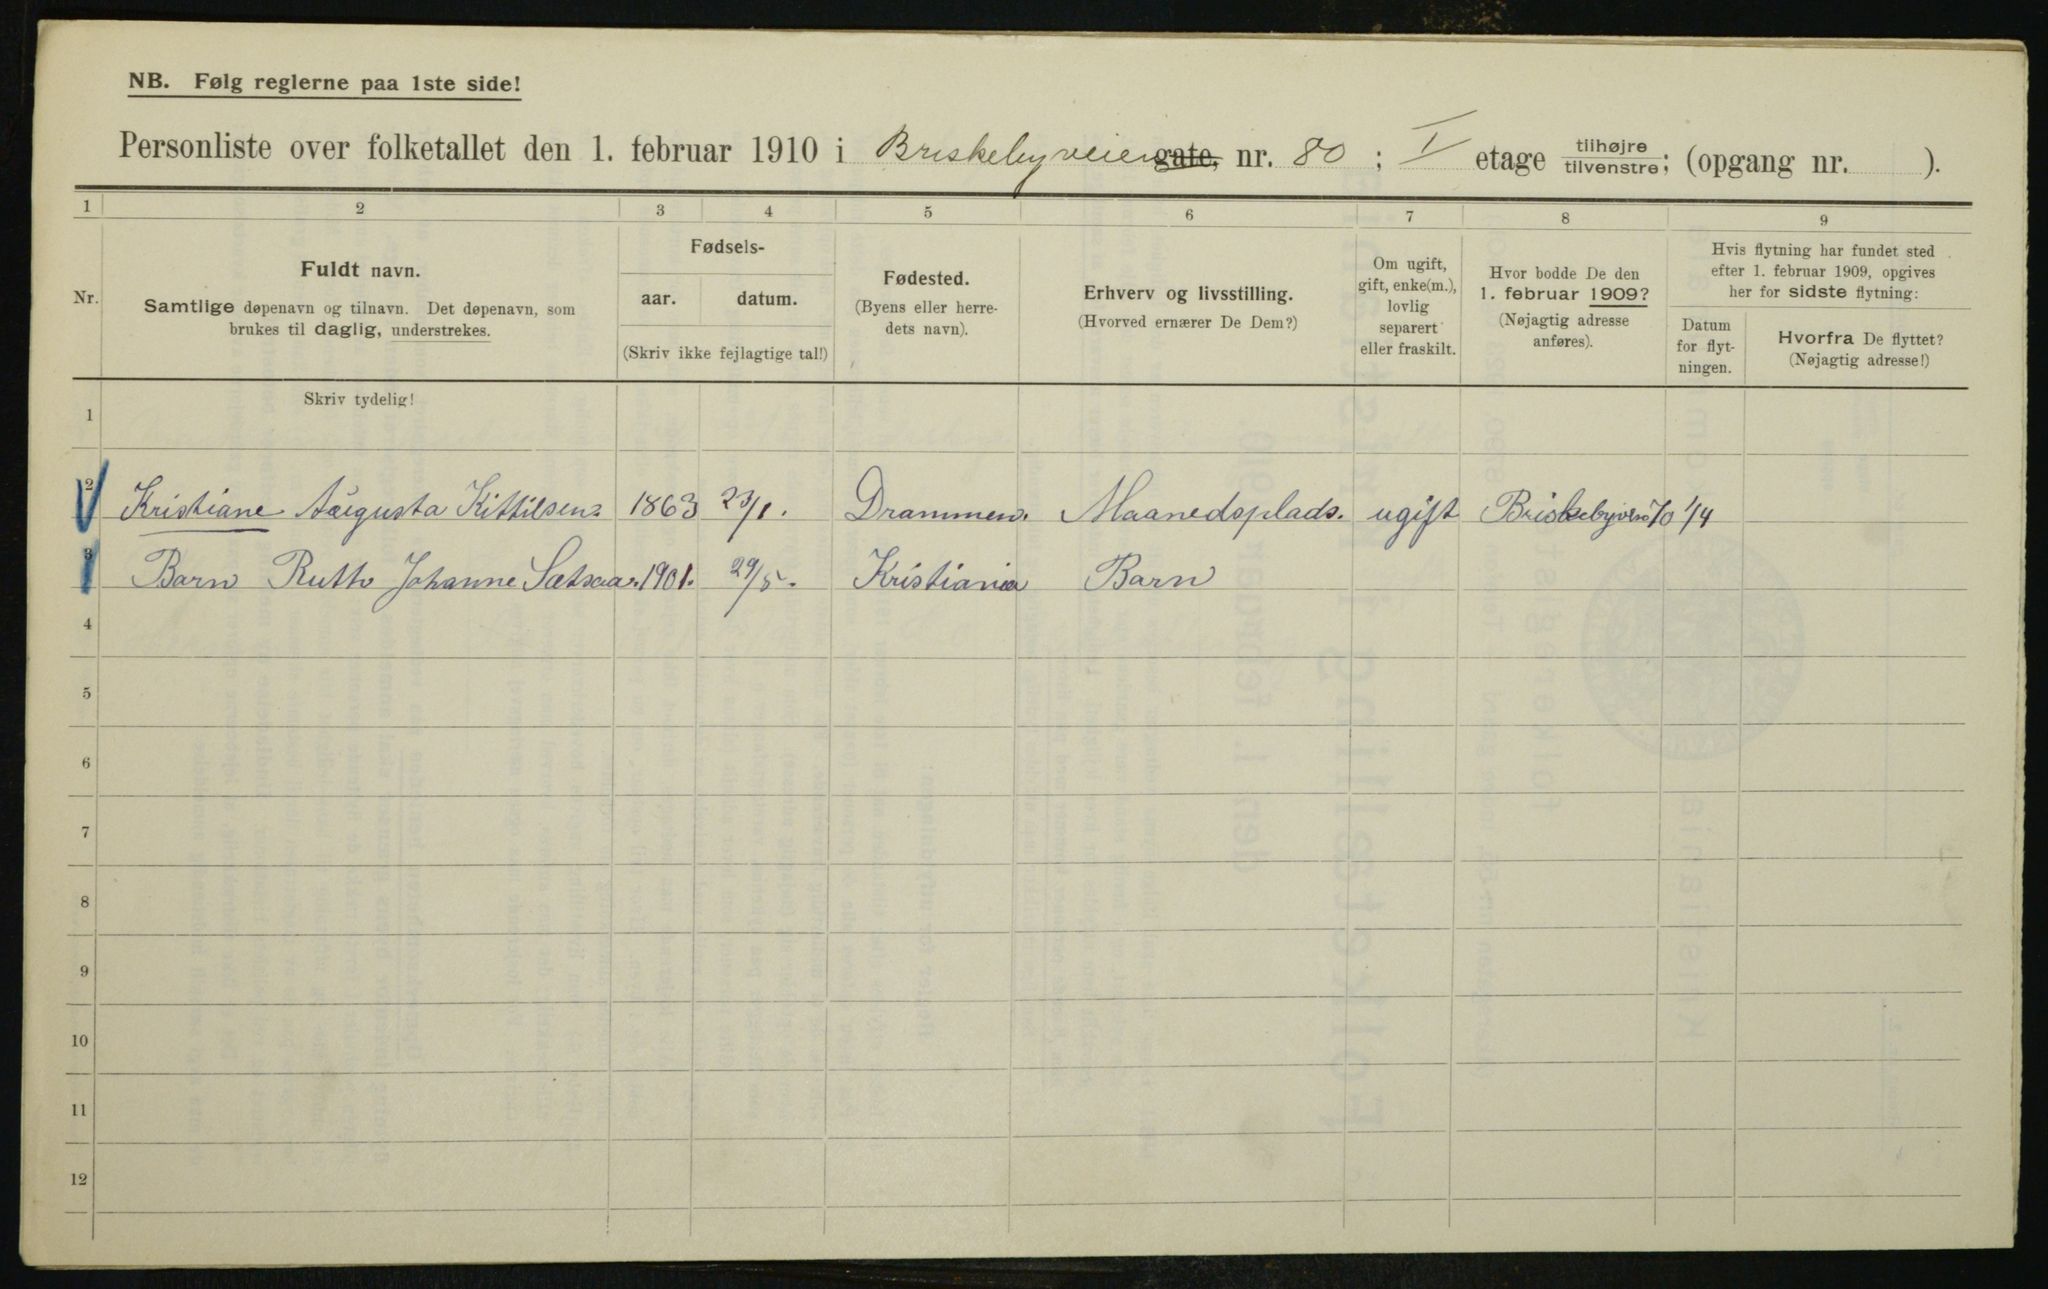 NB. Følg reglerne paa 1ste side!
Personliste over folketallet den 1. februar 1910 i Briskebyveien gate, nr. 80 ; I etage tilhøjre tilvenstre; (opgang nr. ).
1 2 3 4 5 6 7 8 9
Nr.
Fuldt navn.
Samtlige døpenavn og tilnavn. Det døpenavn, som
brukes til daglig, understrekes.
Fødsels-
aar. datum.
(Skriv ikke fejlagtige tal!)
Fødested.
(Byens eller herre-
dets navn).
Erhverv og livsstilling.
(Hvorved ernærer De Dem?)
Om ugift,
gift, enke(m.),
lovlig
separert
eller fraskilt.
Hvor bodde De den
1. februar 1909?
(Nøjagtig adresse
anføres).
Hvis flytning har fundet sted
efter 1. februar 1909, opgives
her for sidste flytning:
Datum
for flyt-
ningen.
Hvorfra De flyttet?
(Nøjagtig adresse!)
Skriv tydelig!
1
2 Kristiane Augusta Kittilsen. 1863 23/1. Drammen. Maanedsplads. ugift Briskebyvei 70 1/4
3 Barn Ruth Johanne Sætsaa. 1901. 29/5. Kristiania Barn
4
5
6
7
8
9
10
11
12